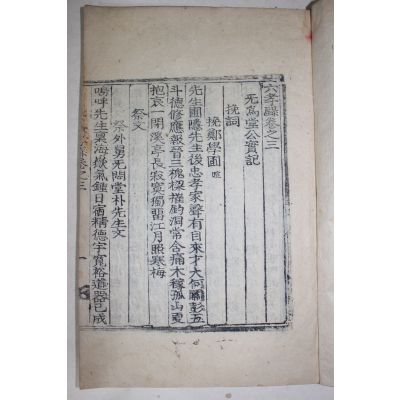 六孝錄卷之三
无爲堂公實記
挽詞
挽鄭學圃 晅
先生圃隱先生後忠孝家聲有自來才大何關彭五
斗德修應報晉三槐樑摧釣洞常含痛木稼孤山更
抱哀一閉溪亭長寂寞獨留江月照寒梅
祭文
祭外舅无悶堂朴先生文
嗚呼先生裏海嶽氣鍾日宿精德宇寬裕道器已成